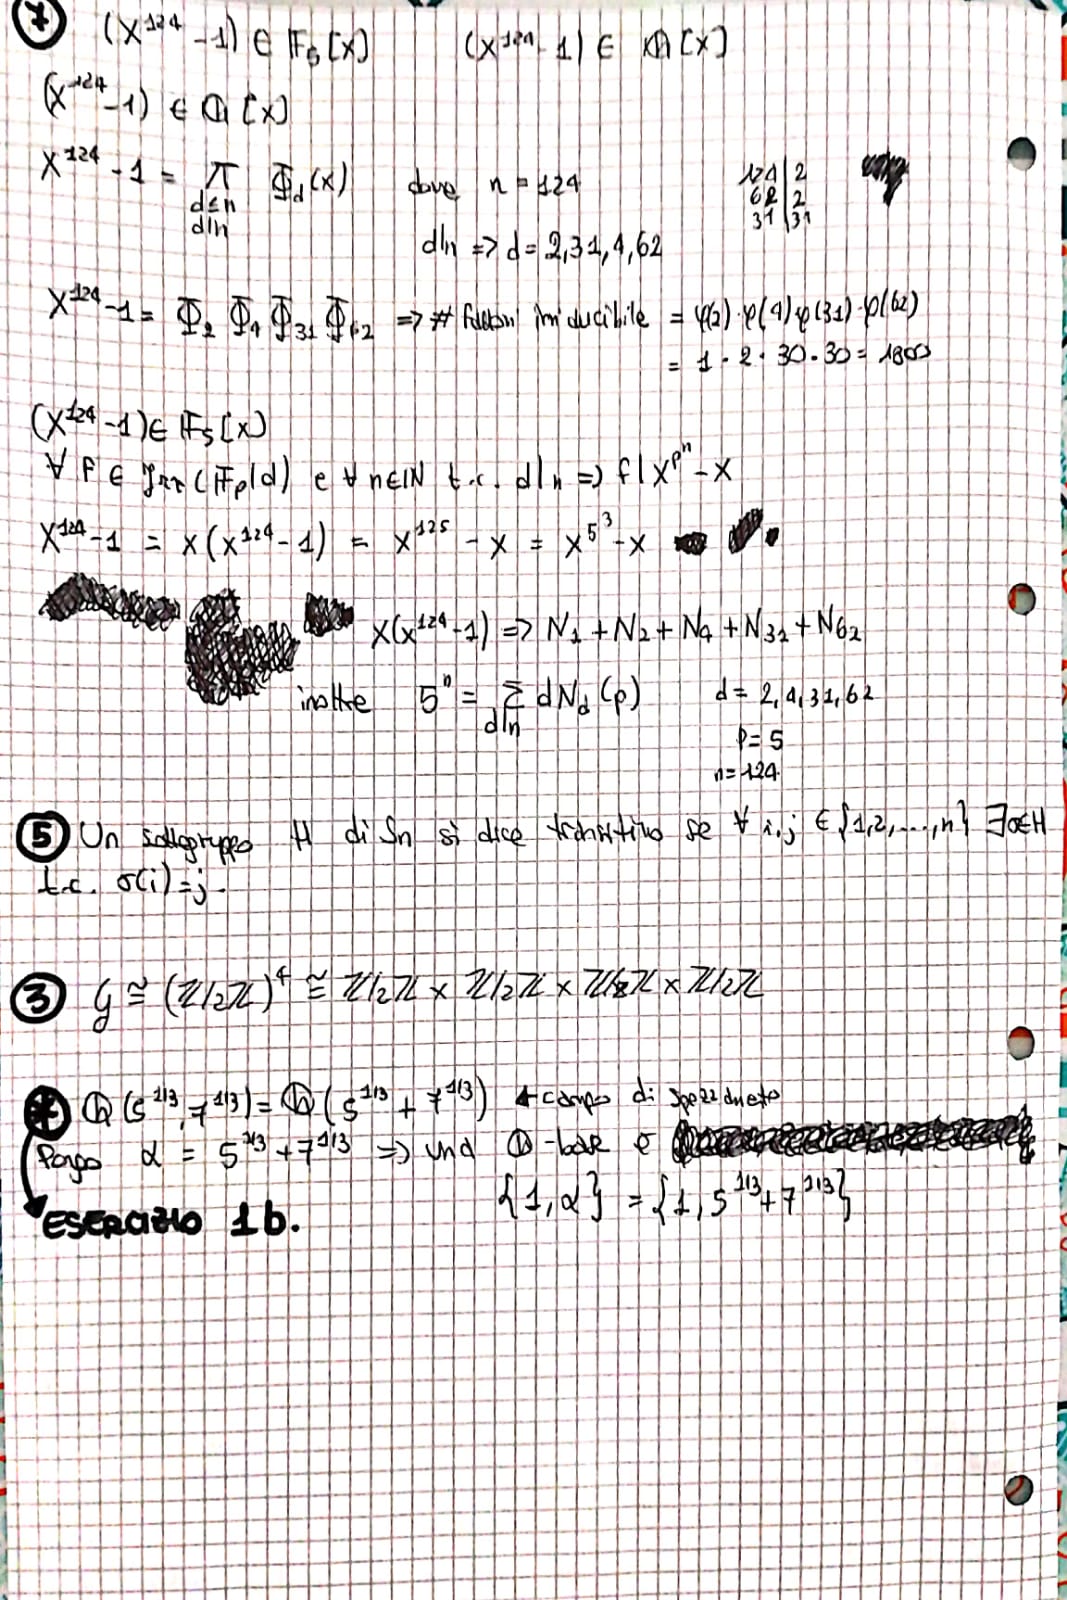 7 (X^124 - 1) ∈ F_5[x] (x^124 - 1) ∈ Q[x]
(x^124 - 1) ∈ Q[x]
X^124 - 1 = π Φ_d(x) dove n = 124 124|2
d≤n 62|2
d|n 31|31
d|n => d = 2,31,4,62
X^124 - 1 = Φ_2 Φ_4 Φ_31 Φ_62 => # fattori irriducibile = φ(2)·φ(4)φ(31)·φ(62)
= 1 · 2 · 30 · 30 = 1800
(X^124 - 1) ∈ F_5[x]
∀ f ∈ Irr(F_p, d) e ∀ n∈N t.c. d|n => f|X^p^n - X
X^124 - 1 = x(x^124 - 1) = x^125 - x = x^5^3 - x
X(x^124 - 1) => N_1 + N_2 + N_4 + N_31 + N_62
inoltre 5^n = Σ d N_d (p) d = 2,4,31,62
d|n
p = 5
n = 124
5 Un sottogruppo H di Sn si dice transitivo se ∀ i,j ∈ {1,2,...,n} ∃σ∈H
t.c. σ(i) = j.
3 G ≅ (Z/2Z)^4 ≅ Z/2Z × Z/2Z × Z/2Z × Z/2Z
* Q(5^1/3, 7^1/3) = Q(5^1/3 + 7^1/3) campo di spezzamento
Pongo α = 5^1/3 + 7^1/3 => una Q-base è
{1, α} = {1, 5^1/3 + 7^1/3}
ESERCIZIO 1b.